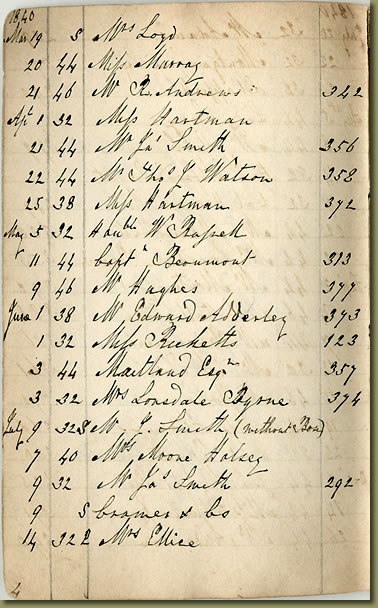 1840
Mar 19 S Mrs Loyd
20 44 Miss Murray
21 46 Mr R. Andrews 342
Apl 1 32 Miss Hartman
21 44 Mr Jas Smith 356
22 44 Mr Thos J Watson 358
25 38 Miss Hartman 372
May 5 32 Honble W Russell
11 44 Captn Beaumont 313
9 46 Mr Hughes 377
June 1 38 Mr Edward Adderley 373
1 32 Miss Ricketts 123
3 44 Maitland Esqr 357
3 32 Mrs Lonsdale Byrne 374
July 9 32 S Mr J. Smith (without Box)
7 40 Mrs Moore Halsey
9 32 Mr Jas Smith 292
9 S Cramer & Co
14 32 Mrs Ellice